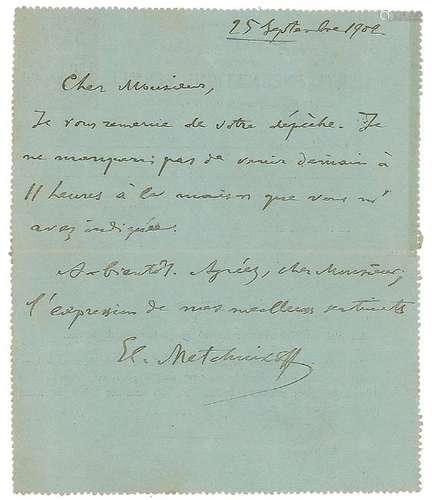 25 Septembre 1902
Cher Monsieur,
Je vous remercie de votre dépêche. Je
ne manquerai pas de venir demain à
11 heures à la maison que vous m'
avez indiquée.
A bientôt. Agréez, cher Monsieur,
l'expression de mes meilleurs sentiments
El. Metchnikoff